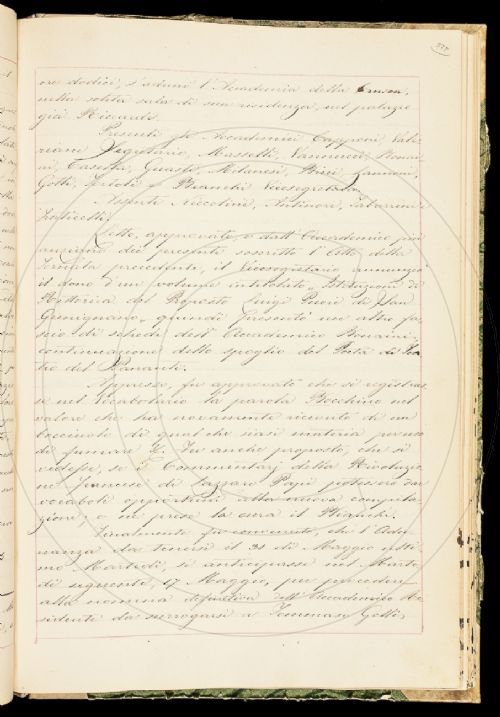 ore dodici, s'adunò l'Accademia della Crusca,
nella solita sala di sua residenza, nel palazzo
già Riccardi.
Presenti gli Accademici Capponi, Vale-
riani Segretario, Masselli, Vannucci, Bonai-
ni, Casella, Guasti, Milanesi, Bini, Zannoni,
Gotti, e Bianchi Vicesegretario.
Assenti Niccolini, Antinori, Tabarrini e
Letto, approvato, e dall'Accademico più
anziano dei presenti soscritto l'Atto della
Tornata precedente, il Vicesegretario annunziò
il dono d'un volume intitolato „ Istituzioni di
Rettorica del Proposto Luigi Pecori di San
Gimignano „ quindi presentò un altro fa-
scio di schede dell'Accademico Bonaini,
continuazione dello spoglio del Poeta di Tea-
tro del Pananti.
Appresso, fu approvato che si registras-
se nel vocabolario la parola Bocchino nel
valore che ha novamente ricevuto di un
bocciuolo di qual che siasi materia per uso
di fumare &. Fu anche proposto, che si
vedesse, se i Commentarj della Rivoluzio-
ne francese di Lazzaro Papi potessero dar
vocaboli opportuni alla nuova compila-
zione; e ne prese la cura il Bianchi.
Finalmente fu convenuto, che l'Adu-
nanza da tenersi il 31 di Maggio ulti-
mo Martedì, si anticipasse nel Marte-
dì seguente, 17 Maggio, per procedere
alla nomina definitiva dell'Accademico Re-
sidente da surrogarsi a Tommaso Gelli,